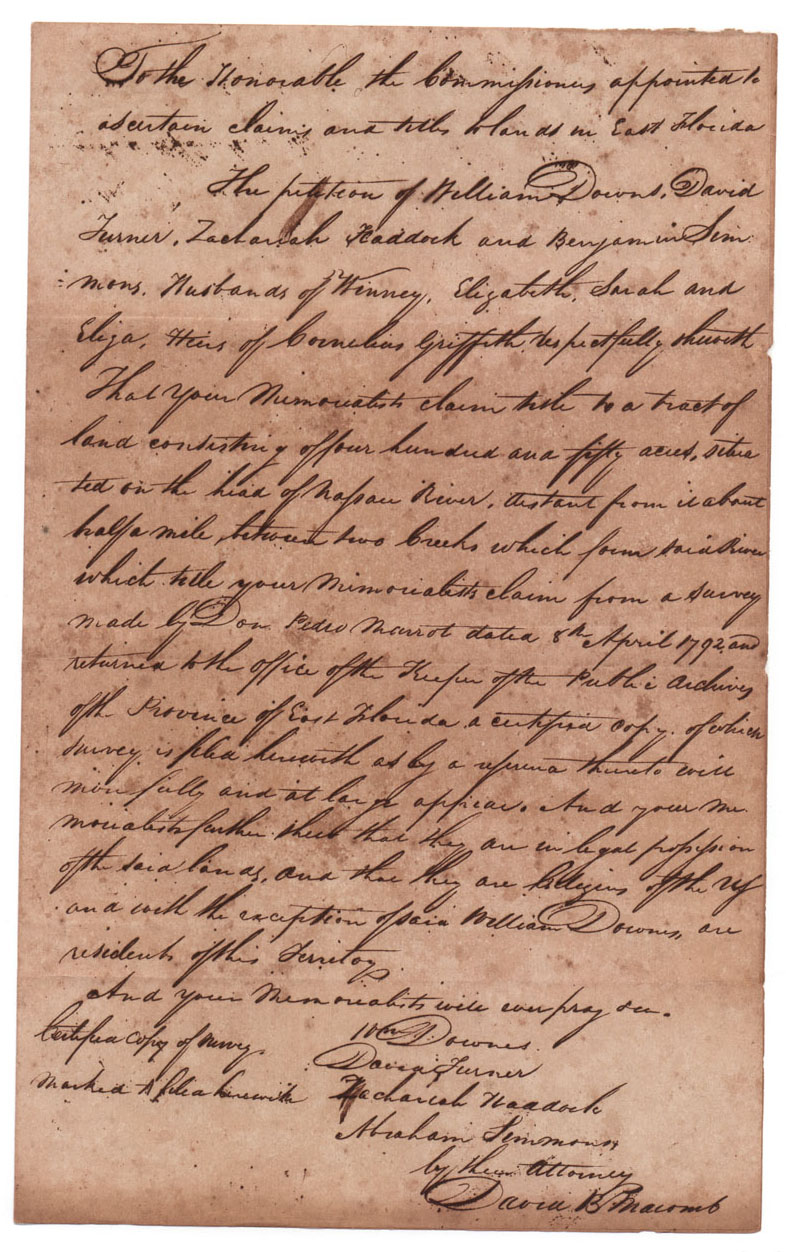 To the Honorable the Commissioners appointed to
ascertain claims and titles to lands in East Florida
The petition of William Downs, David
Turner, Zachariah Haddock and Benjamin Sim
mons, Husbands of Winney, Elizabeth, Sarah and
Eliza, Heirs of Cornelius Griffith, respectfully sheweth
That your Memorialists claim title to a tract of
land consisting of four hundred and fifty acres, situa
ted on the head of Nassau River, distant from it about
half a mile, between two Creeks which form said River
which title your Memorialists claim from a survey
made by Don Pedro Marrot dated 8th April 1792, and
returned to the office of the Keeper of the Public Archives
of the Province of East Florida a certified copy of which
survey is filed herewith as by a referena thereto will
more fully and at large appear. And your me
morialists further shew that they are in legal possession
of the said lands, and that they are Citizens of the US
and with the exception of said William Downes, are
residents of this Territoy
And your Memorialists will ever pray &c.
Certified Copy of survey
marked A filed herewith
Wm Downes
David Turner
Zachariah Haddock
Abraham Simmons
by their Attorney
David B Macomb